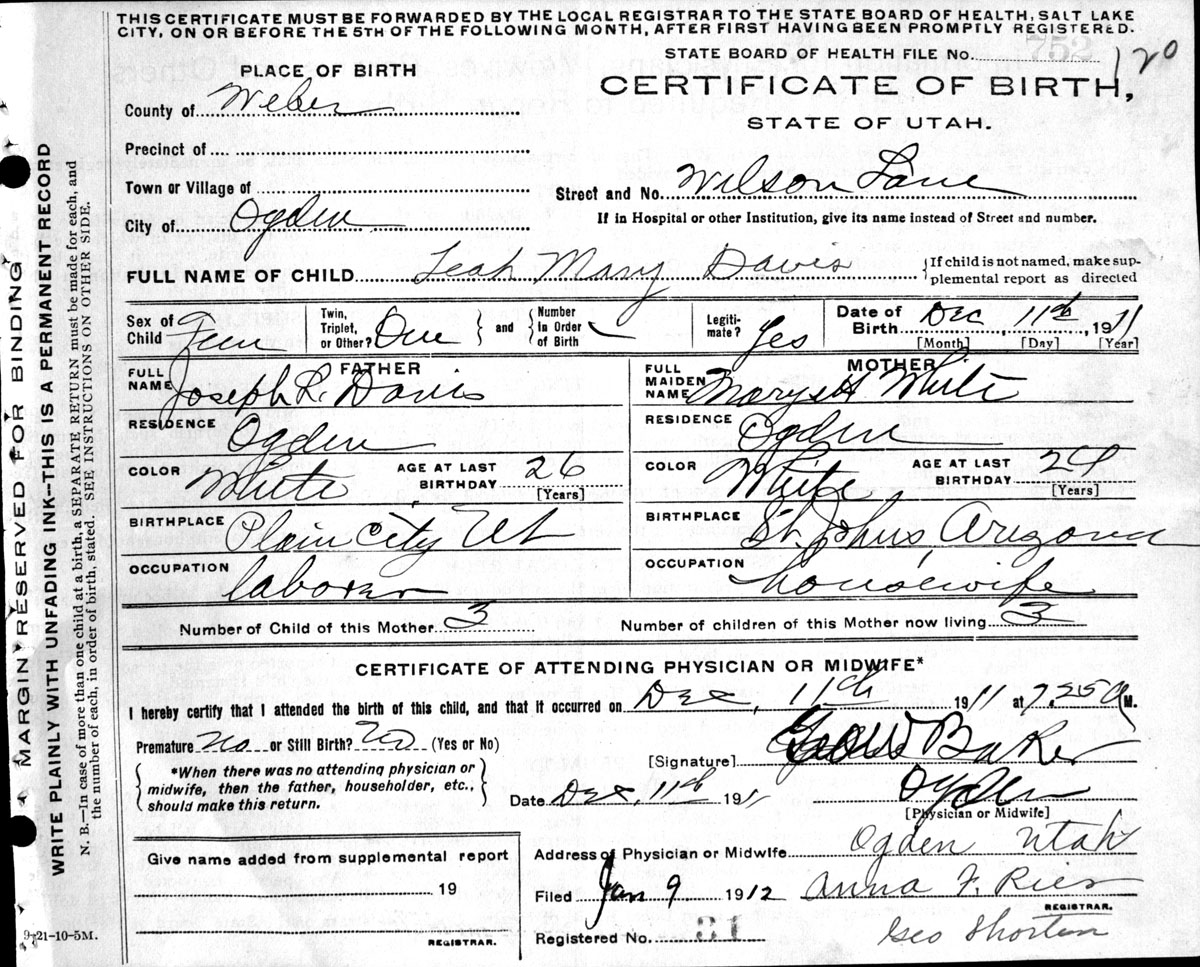 THIS CERTIFICATE MUST BE FORWARDED BY THE LOCAL REGISTRAR TO THE STATE BOARD OF HEALTH, SALT LAKE
CITY, ON OR BEFORE THE 5TH OF THE FOLLOWING MONTH, AFTER FIRST HAVING BEEN PROMPTLY REGISTERED.
STATE BOARD OF HEALTH FILE No. 752 120
PLACE OF BIRTH
CERTIFICATE OF BIRTH,
STATE OF UTAH.
County of Weber
Precinct of
Town or Village of
Street and No. Wilson Lane
City of Ogden
If in Hospital or other Institution, give its name instead of Street and number.
FULL NAME OF CHILD Leah Mary Davis
{If child is not named, make sup-
plemental report as directed
Sex of Child Fem
Twin, Triplet, or Other? One
and
Number In Order of Birth
Legiti-mate? Yes
Date of Birth Dec, 11th, 1911
[Month] [Day] [Year]
FATHER
FULL NAME Joseph R. Davis
MOTHER
FULL MAIDEN NAME White
RESIDENCE Ogden
RESIDENCE Ogden
COLOR White AGE AT LAST BIRTHDAY 26 [Years]
COLOR White AGE AT LAST BIRTHDAY 24 [Years]
BIRTHPLACE Plain City Ut
BIRTHPLACE St Johns, Arizona
OCCUPATION laborer
OCCUPATION housewife
Number of Child of this Mother 3
Number of children of this Mother now living 3
CERTIFICATE OF ATTENDING PHYSICIAN OR MIDWIFE*
I hereby certify that I attended the birth of this child, and that it occurred on Dec, 11th 1911 at 7.25 M.
Premature No or Still Birth? No (Yes or No)
[Signature] Geo W Baker
*When there was no attending physician or
midwife, then the father, householder, etc.,
should make this return.
Date Dec, 11th 1911
Ogden
[Physician or Midwife]
Give name added from supplemental report
19
REGISTRAR.
Address of Physician or Midwife Ogden Utah
Filed Jan 9 1912 Anna F. Ries
REGISTRAR.
Registered No. 31
Geo Shorten
9-21-10-5M.
MARGIN RESERVED FOR BINDING
WRITE PLAINLY WITH UNFADING INK—THIS IS A PERMANENT RECORD
N. B.—In case of more than one child at a birth, a SEPARATE RETURN must be made for each, and
the number of each, in order of birth, stated. SEE INSTRUCTIONS ON OTHER SIDE.